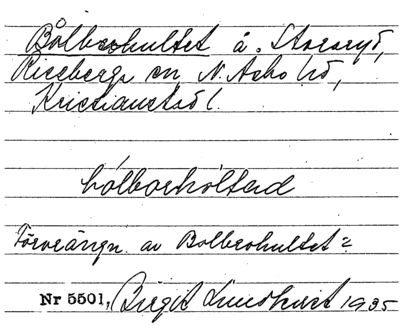 Bålbrohultet å. Storaryd,
Riseberga sn, N. Åsbo hd,
Kristianstad l.
bålbrohòltad
Förvrängn. av Bolbrohultet?
Nr 5501, Birgit Lundkvist 1935